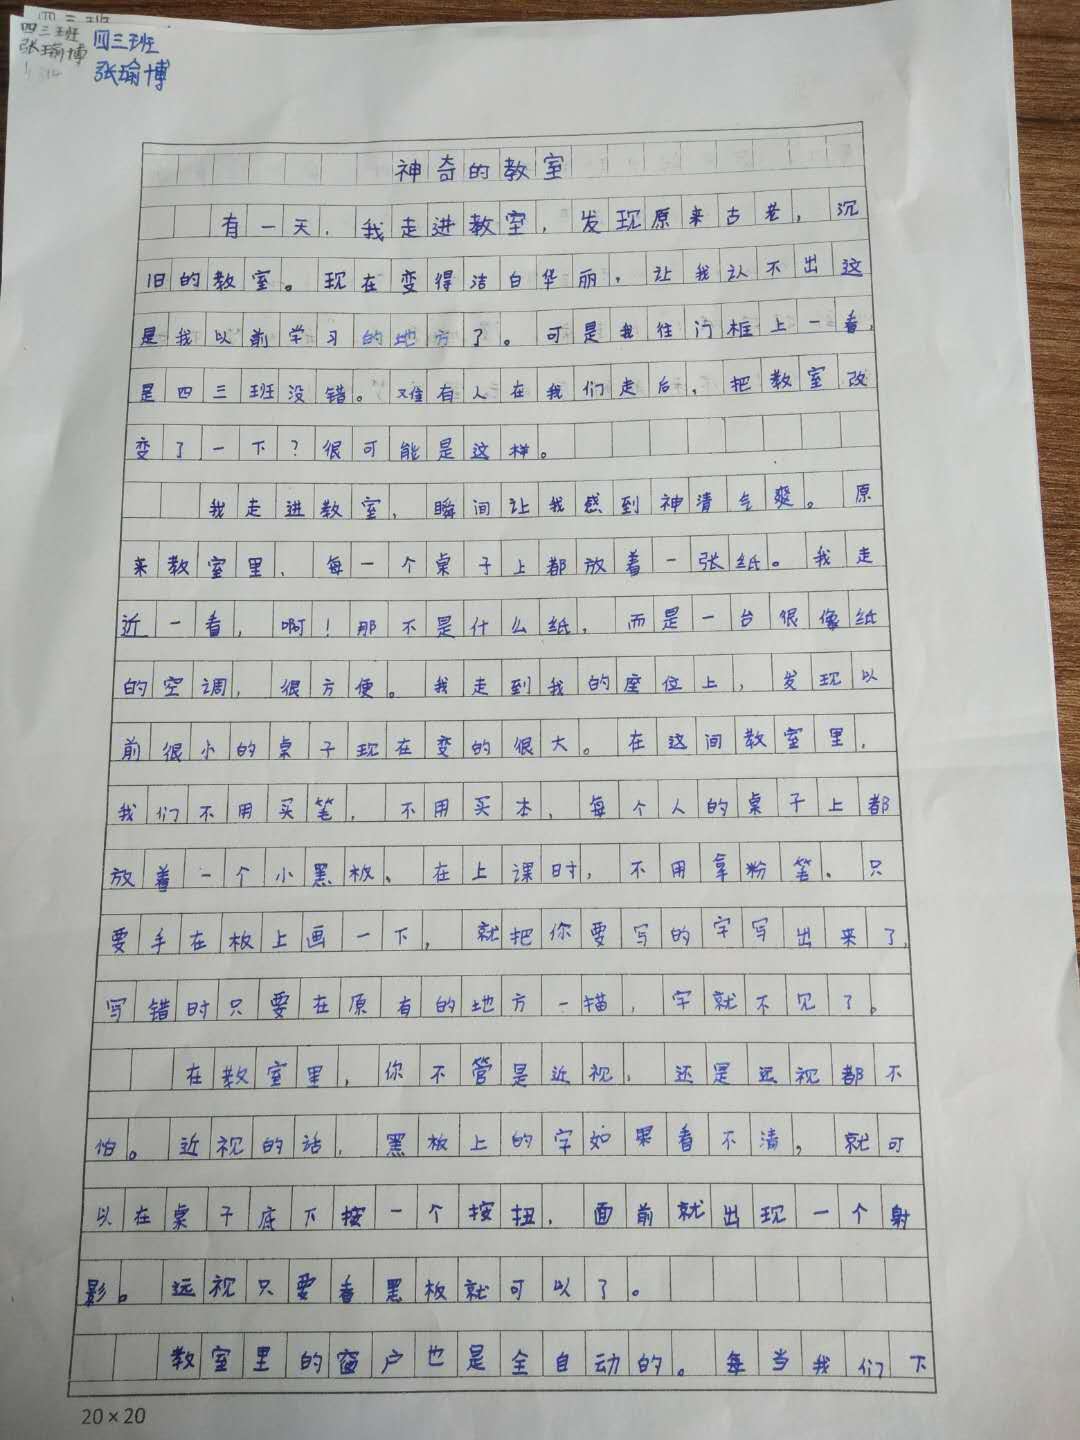 四三班
四三班
张瑜博
四三班
张瑜博
神奇的教室
有一天，我走进教室，发现原来古老，沉
旧的教室。现在变得洁白华丽，让我认不出这
是我以前学习的地方了。可是我往门框上一看，
是四三班没错。难有人在我们走后，把教室改
变了一下？很可能是这样。
我走进教室，瞬间让我感到神清气爽。原
来教室里，每一个桌子上都放着一张纸。我走
近一看，啊！那不是什么纸，而是一台很像纸
的空调，很方便。我走到我的座位上，发现以
前很小的桌子现在变的很大。在这间教室里，
我们不用买笔，不用买本，每个人的桌子上都
放着一个小黑板、在上课时，不用拿粉笔。只
要手在板上画一下，就把你要写的字写出来了，
写错时只要在原有的地方一描，字就不见了。
在教室里，你不管是近视，还是远视都不
怕。近视的话，黑板上的字如果看不清，就可
以在桌子底下按一个按扭，面前就出现一个射
影。远视只要看黑板就可以了。
教室里的窗户也是全自动的。每当我们下
20×20